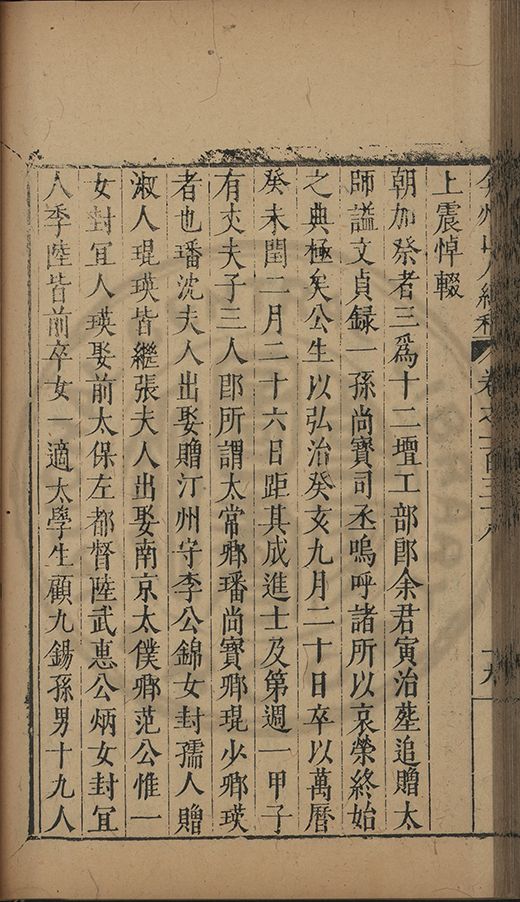 弇州山人續稿 卷之一百三十八
上震悼輟
朝加祭者三爲十二壇工部郎余君寅治塟追贈太
師謚文貞録一孫尚寶司丞嗚呼諸所以哀榮終始
之典極矣公生以弘治癸亥九月二十日卒以萬曆
癸未閏二月二十六日距其成進士及第週一甲子
有丈夫子三人郎所謂太常卿璠尚寶卿琨少卿瑛
者也璠沈夫人出娶贈汀州守李公錦女封孺人贈
淑人琨瑛皆繼張夫人出娶南京太僕卿范公惟一
女封宜人瑛娶前太保左都督陸武惠公炳女封宜
人季陸皆前卒女一適太學生顧九錫孫男十九人